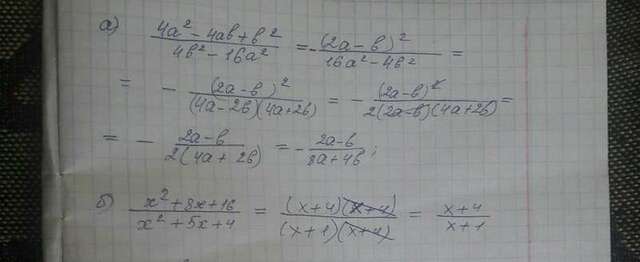 а) (4a² - 4ab + b²)/(4b² - 16a²) = -(2a - b)²/(16a² - 4b²) =
= - (2a - b)²/((4a - 2b)(4a + 2b)) = - (2a - b)²/(2(2a - b)(4a + 2b)) =
= - (2a - b)/(2(4a + 2b)) = - (2a - b)/(8a + 4b);
б) (x² + 8x + 16)/(x² + 5x + 4) = ((x + 4)(x + 4))/((x + 1)(x + 4)) = (x + 4)/(x + 1)